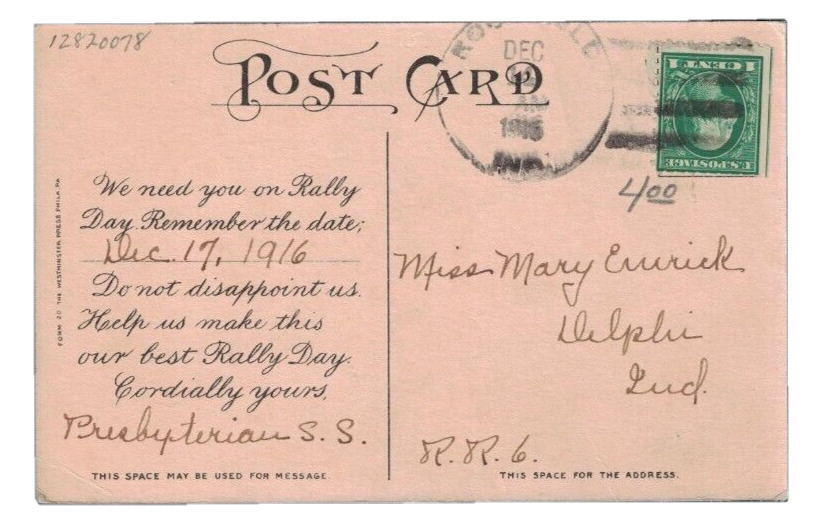 12820078
POST CARD
DEC
AM
1 CENT 1
U.S. POSTAGE
4.00
We need you on Rally
Day. Remember the date;
Dec. 17, 1916
Do not disappoint us.
Help us make this
our best Rally Day.
Cordially yours,
Presbyterian S. S.
THIS SPACE MAY BE USED FOR MESSAGE.
FORM 20 THE WESTMINSTER PRESS PHILA. PA
Miss Mary Emrick
Delphi
Ind.
R. R. 6.
THIS SPACE FOR THE ADDRESS.